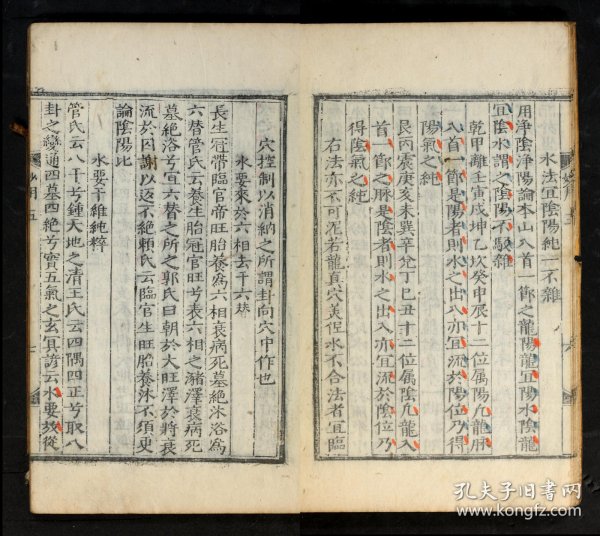 水法宜陰陽純一不雜
用淨陰淨陽論本山入首一節之龍陽龍宜陽水陰龍
宜陰水謂之陰陽不駁雜
乾甲離壬寅戌坤乙坎癸申辰十二位属陽凢龍用
入首一節是陽者則水之出入亦宜流於陽位乃得
陽氣之純
艮丙震庚亥未巽辛兌丁巳丑十二位属陰凢龍入
首一節之脉是陰者則水之出入亦宜流於陰位乃
得陰氣之純
右法亦不可泥若龍真穴美但水不合法者宜臨
穴控制以消納之所謂卦向穴中作也
水要來於六相去于六替
長生冠帶臨官帝旺胎養爲六相衰病死墓絶沐浴爲
六替管氏云養生胎冠官旺兮表六相之豬澤衰病死
墓絶浴兮宣六替之所之郭氏曰朝於大旺澤於將衰
流於囚謝以返不絶賴氏云臨官生旺胎養沐不須更
論陰陽比
水要干維純粹
管氏云八干兮鍾天地之清王氏云四隅四正兮取八
卦之變通四墓四絶兮寳五氣之玄宜諺云水要放從
孔夫子旧书网
www.kongfz.com